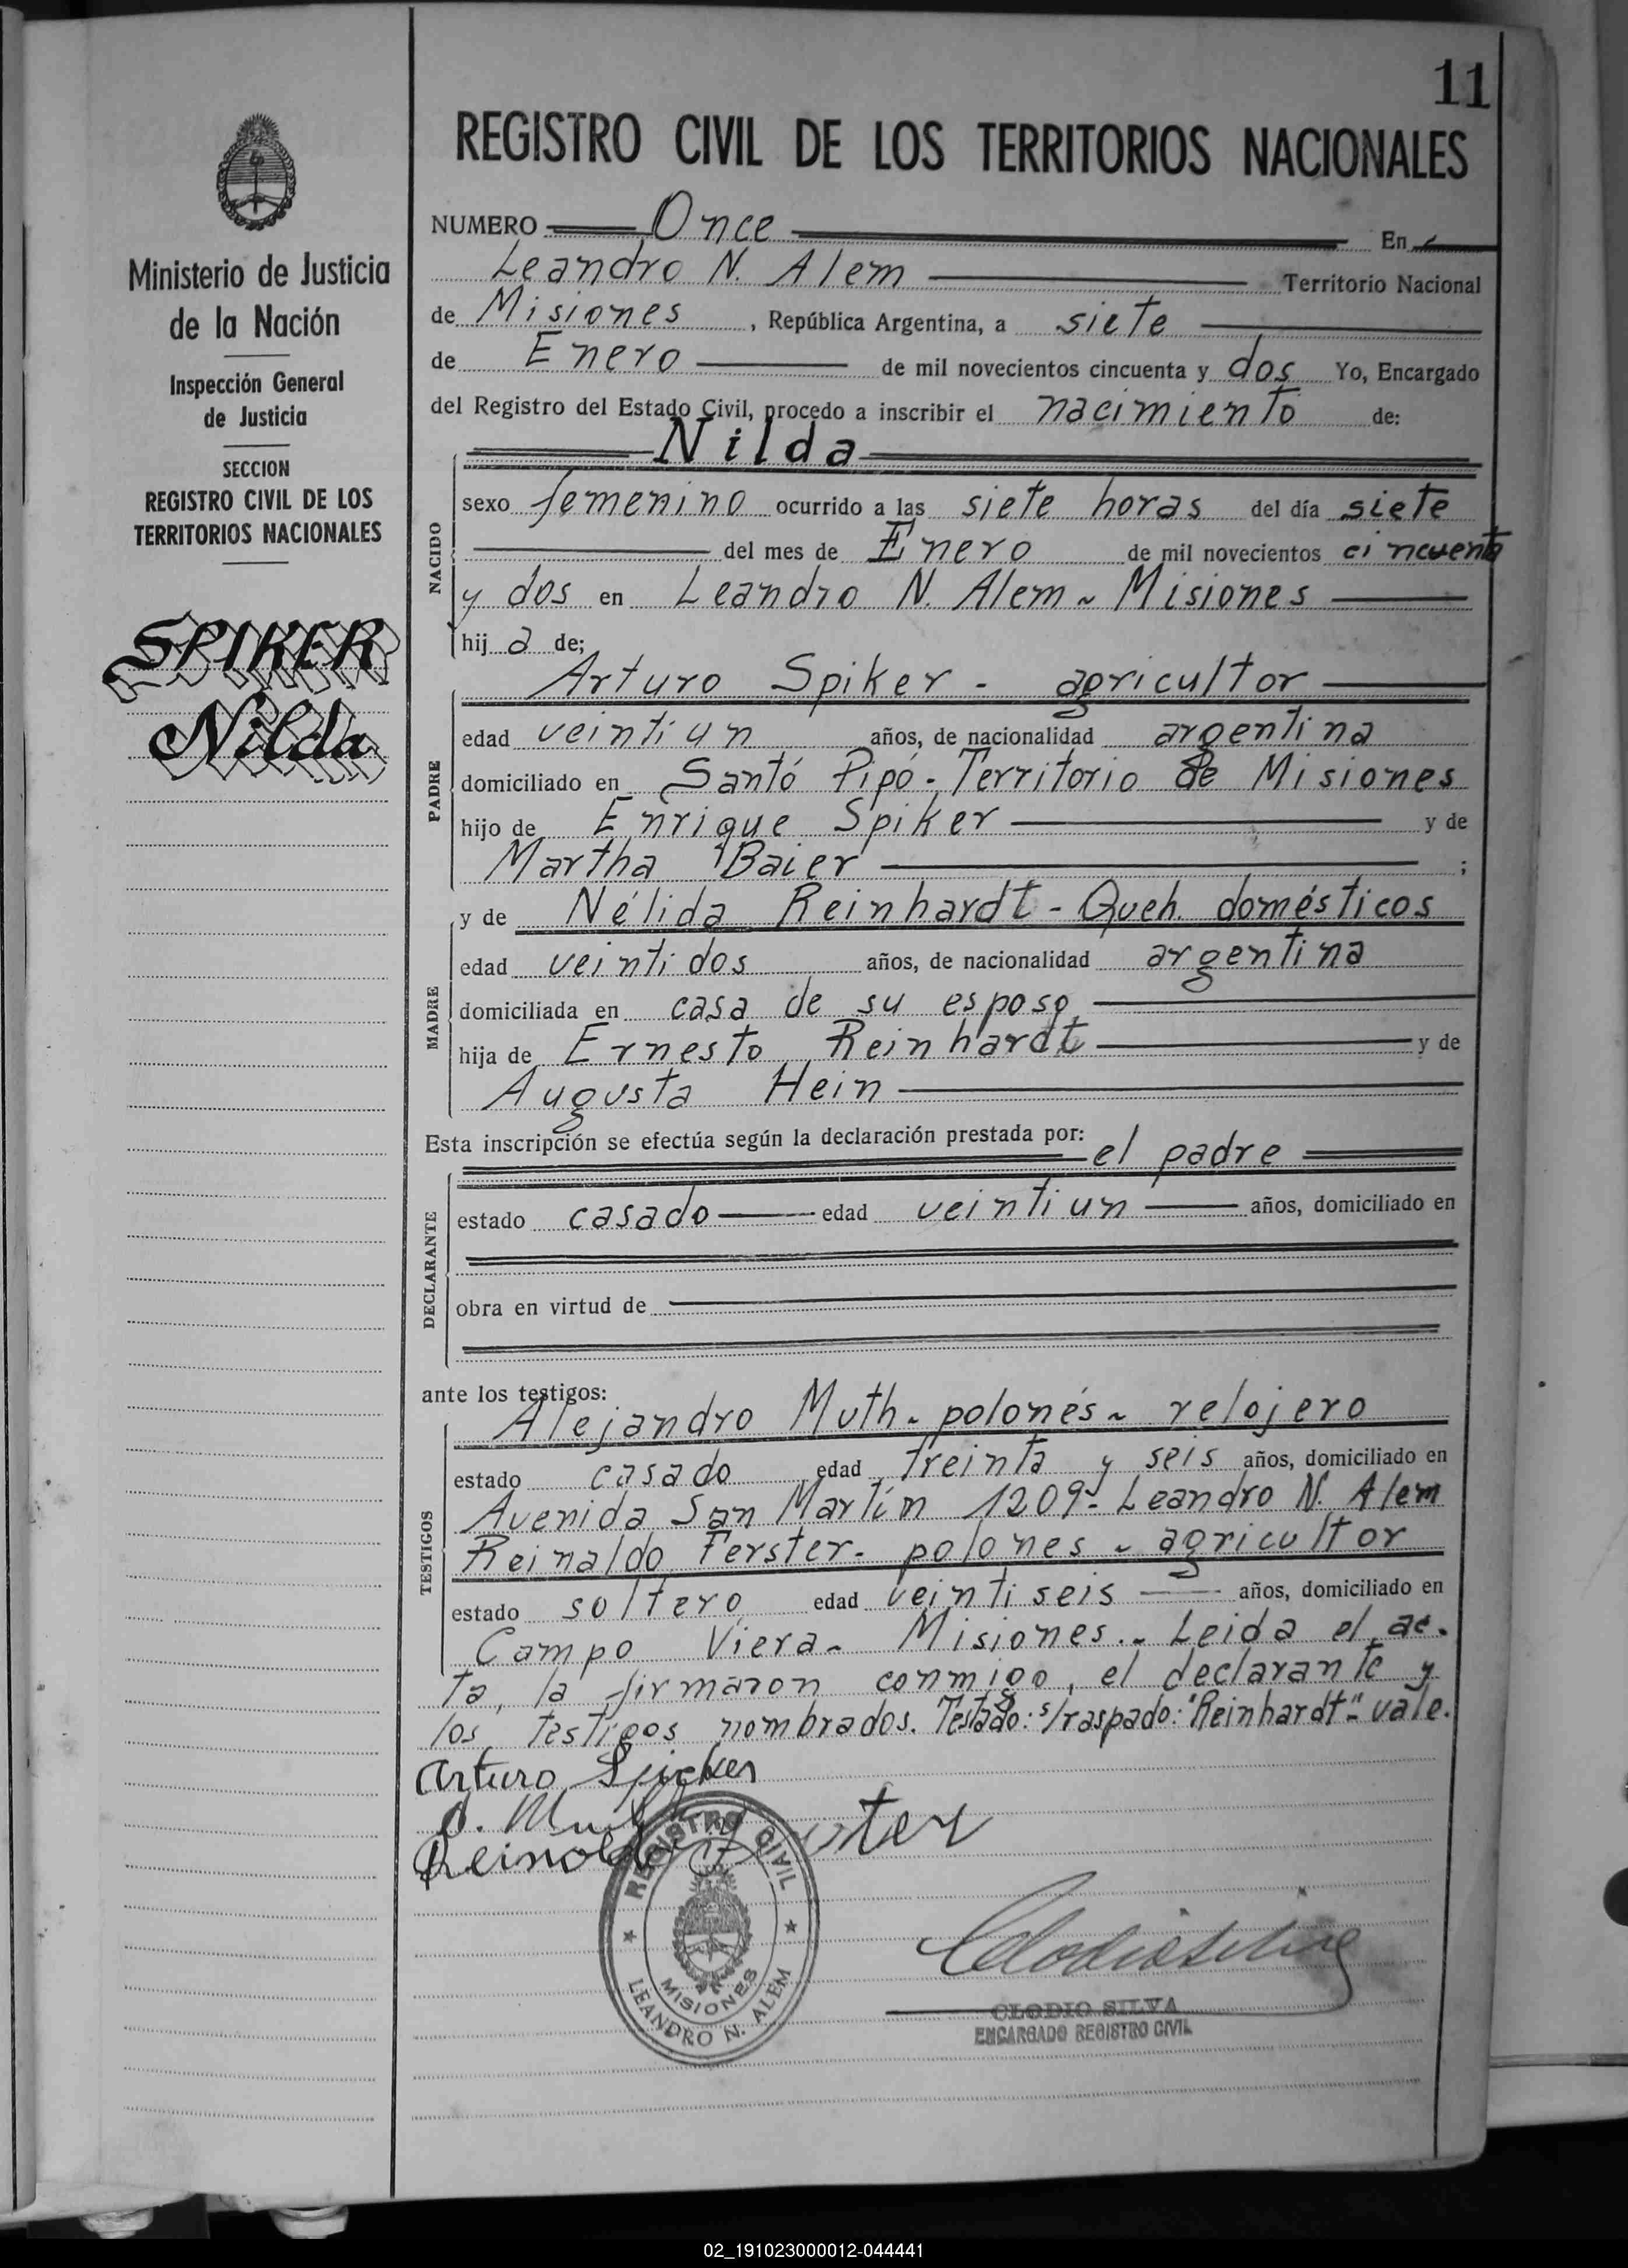 11
REGISTRO CIVIL DE LOS TERRITORIOS NACIONALES
Ministerio de Justicia
de la Nación
Inspección General
de Justicia
SECCION
REGISTRO CIVIL DE LOS
TERRITORIOS NACIONALES
SPIKER
Nilda
NUMERO Once En
Leandro N. Alem Territorio Nacional
de Misiones, República Argentina, a siete
de Enero de mil novecientos cincuenta y dos Yo, Encargado
del Registro del Estado Civil, procedo a inscribir el nacimiento de:
Nilda
NACIDO
sexo femenino ocurrido a las siete horas del día siete
del mes de Enero de mil novecientos cincuenta
y dos en Leandro N. Alem - Misiones
hija de;
PADRE
Arturo Spiker - agricultor
edad veintiun años, de nacionalidad argentina
domiciliado en Santó Pipó - Territorio de Misiones
hijo de Enrique Spiker y de
Martha Baier ;
MADRE
y de Nélida Reinhardt - Queh. domésticos
edad veintidos años, de nacionalidad argentina
domiciliada en casa de su esposo
hija de Ernesto Reinhardt y de
Augusta Hein
Esta inscripción se efectúa según la declaración prestada por: el padre
DECLARANTE
estado casado edad veintiun años, domiciliado en
obra en virtud de
ante los testigos:
TESTIGOS
Alejandro Muth - polonés - relojero
estado casado edad treinta y seis años, domiciliado en
Avenida San Martín 1209 - Leandro N. Alem
Reinaldo Ferster - polones - agricultor
estado soltero edad veintiseis años, domiciliado en
Campo Viera - Misiones.- Leida el ac-
ta, la firmaron conmigo, el declarante y
los testigos nombrados. Testado: s/raspado: "Reinhardt" - vale.
Arturo Spicker
A. Muth
Reinoldo
REGISTRO CIVIL
MISIONES
LEANDRO N. ALEM
CLODIO SILVA
ENCARGADO REGISTRO CIVIL
02_191023000012-044441